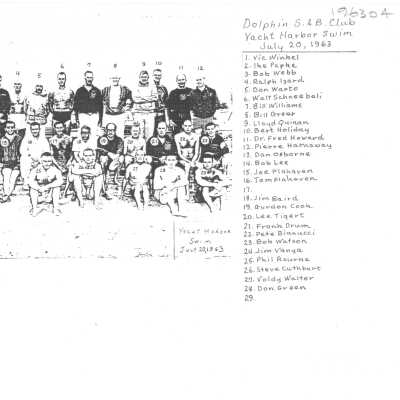 196304
Dolphin S. & B. Club
Yacht Harbor Swim
July 20, 1963
1. Vic Winkel
2. Ike Parke
3. Bob Webb
4. Ralph Izard
5. Don Warto
6. Walt Schneebeli
7. Bill Williams
8. Bill Green
9. Lloyd Quinan
10. Bert Holiday
11. Dr. Fred Howard
12. Pierre Hathaway
13. Dan Osborne
14. Bob Lee
15. Joe Plahaven
16. Templehoven
17.
18. Jim Baird
19. Gurdon Cook
20. Lee Tigert
21. Frank Drum
22. Pete Bianucci
23. Bob Watson
24. Jim Vanya
25. Phil Bourne
26. Steve Cuthbert
27. Valdy Walter
28. Don Green
29.
4 5 6 7 8 9 10 11 12
Yacht Harbor
Swim
July 20, 1963